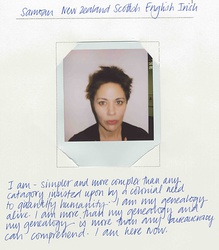 Samoan New Zealand Scottish English Irish
I am - simpler and more complex than any
catagory insisted upon by a colonial need
to quantify humanity. I am my genealogy
alive. I am more than my genealogy and
my genealogy is more than any bureaucracy
can comprehend. I am here now.